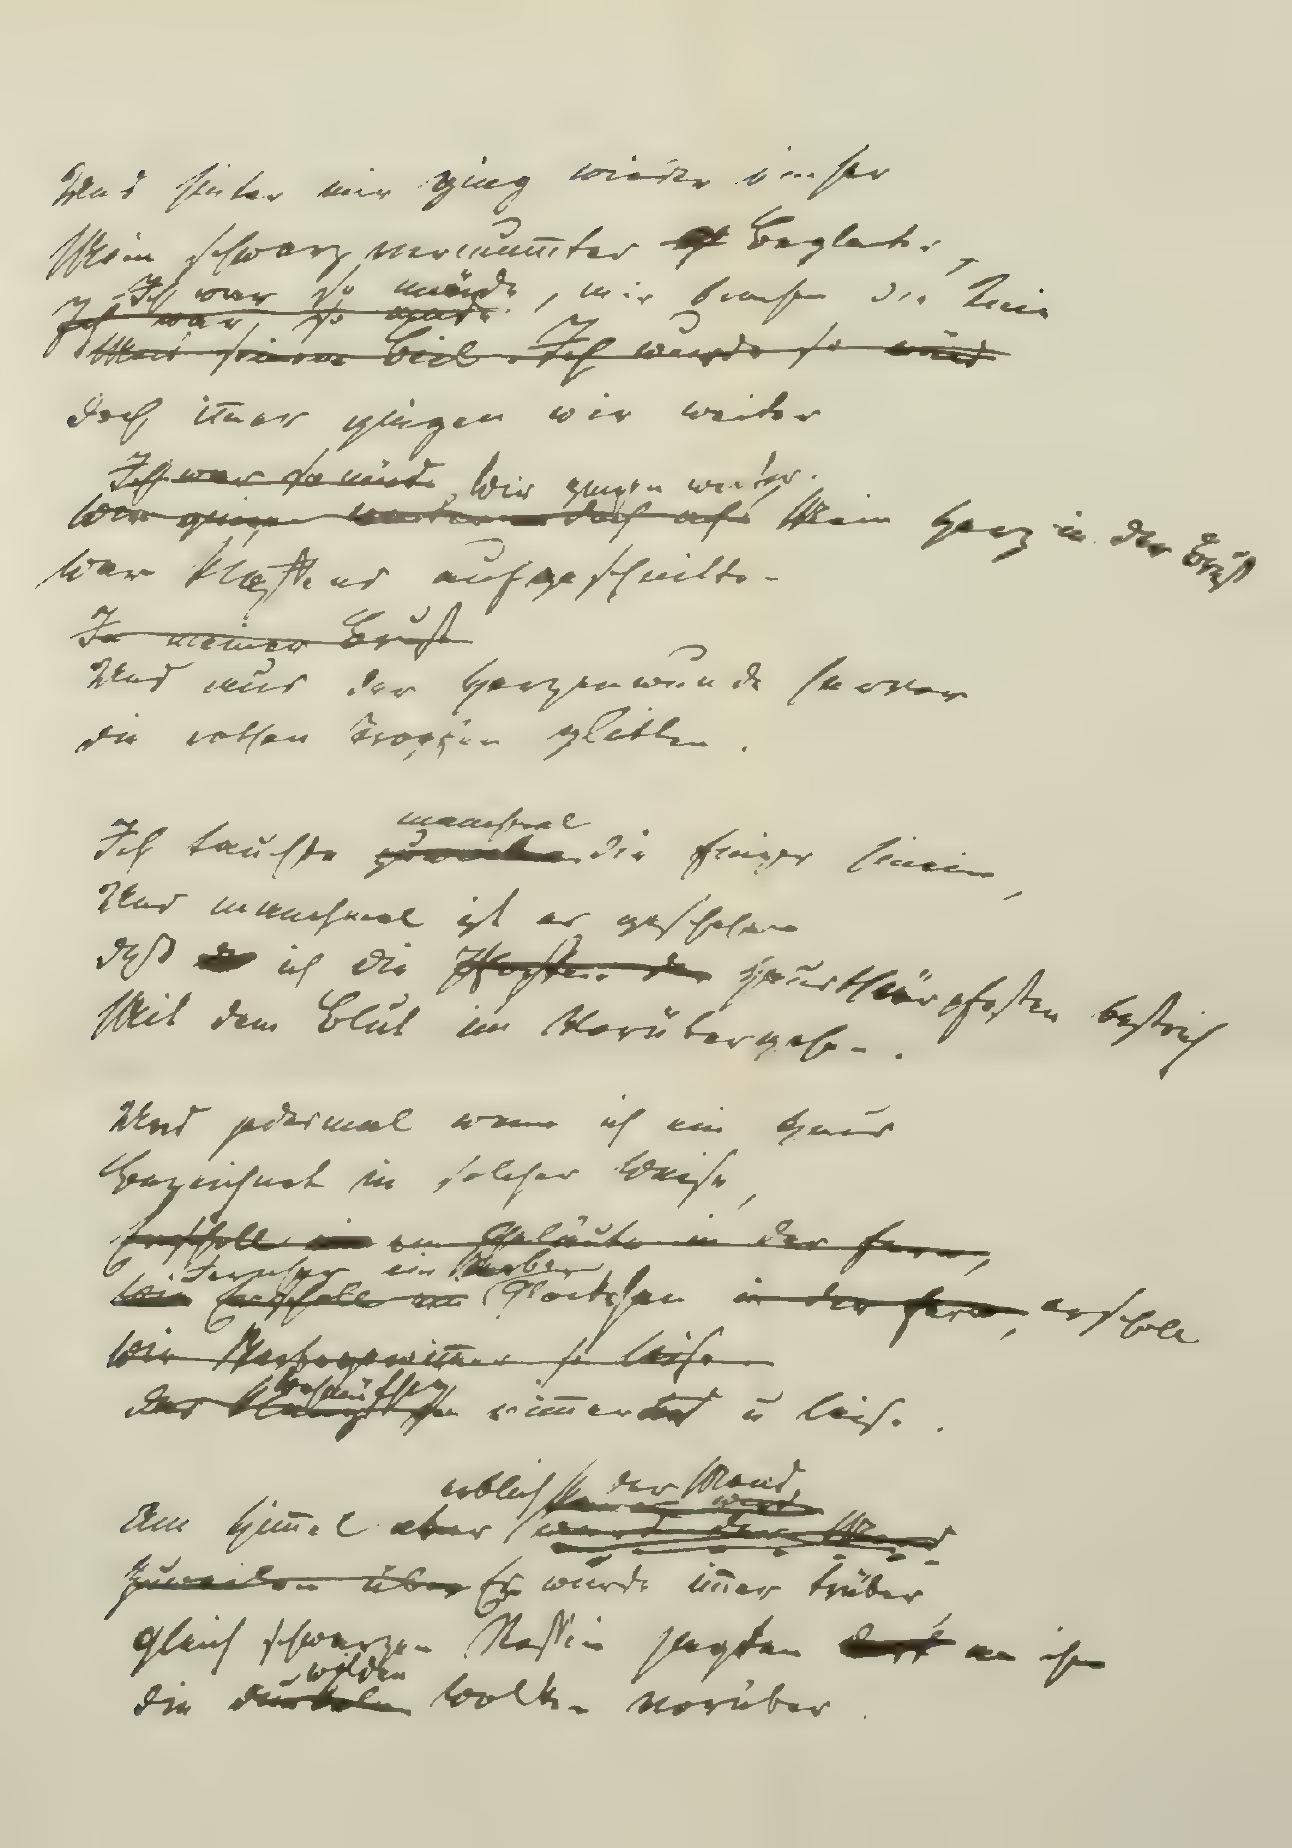 Und hinter mir ging wieder einher
Mein schwarz vermummter Begleiter,
Ich war so müde, mir brachen die Knie
Ich war so müde
Und seinem Beil. Ich wurde so müd
doch immer gingen wir weiter
Ich war so müde Wir gingen weiter.
Wir gingen weiter doch Mein Herz in der Brust
War klaffend aufgeschnitten
In meiner Brust
Und aus der Herzenwunde hervor
die rothen Tropfen glitten.
manchmal
Ich tauchte zuweilen die Finger hinein,
Und manchmal ist es geschehen
daß ich die Pfosten der Hausthürpfosten bestrich
Mit dem Blut im Vorübergehen.
Und jedesmal wenn ich ein Haus
Bezeichnet in solcher Weise,
Erscholl ein ein Geläute in der Fern,
Fernher ein Sterbe
Wie Erscholl ein Glöckchen in der Fern, erscholl
Wie Sterbegewimmer so leise
wehmüthig
das wimmernd u leise.
erblich der Mond,
Am Himmel aber ward der Mond
Zuweilen über Er wurde immer trüber
gleich schwarzen Rossen jagten an ihm
wilden
die dunkeln Wolken vorüber.